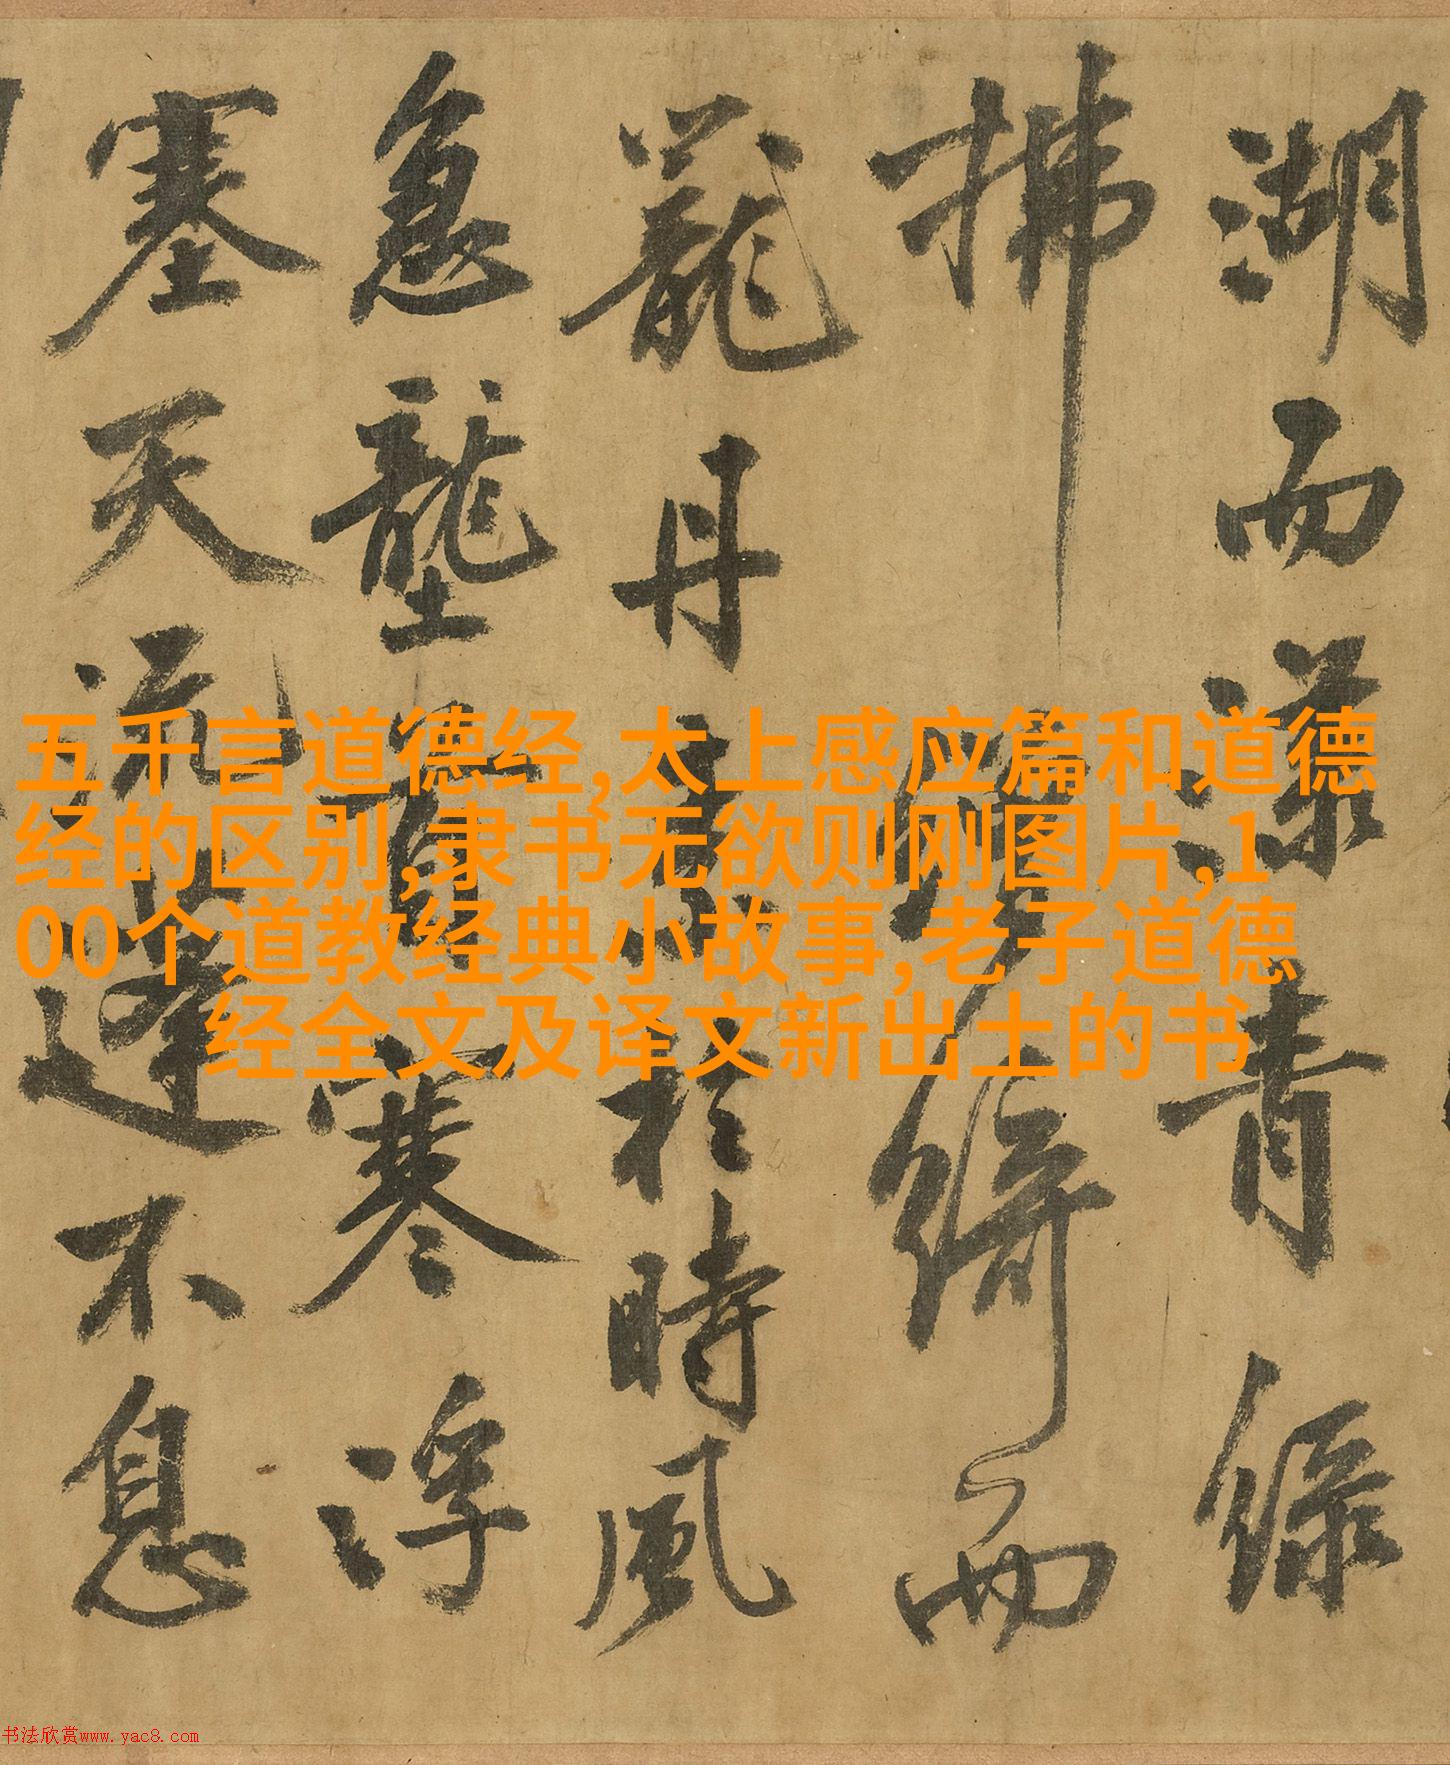 湖而漾青緑
拂綺而
丹於時風
急壟寒浮
塞天流蓬不息
五千言道德经,太上感应篇和道德
经的区别,隶书无欲则刚图片,1
00个道教经典小故事,老子道德
经全文及译文新出土的书
书法欣赏www.yac8.com